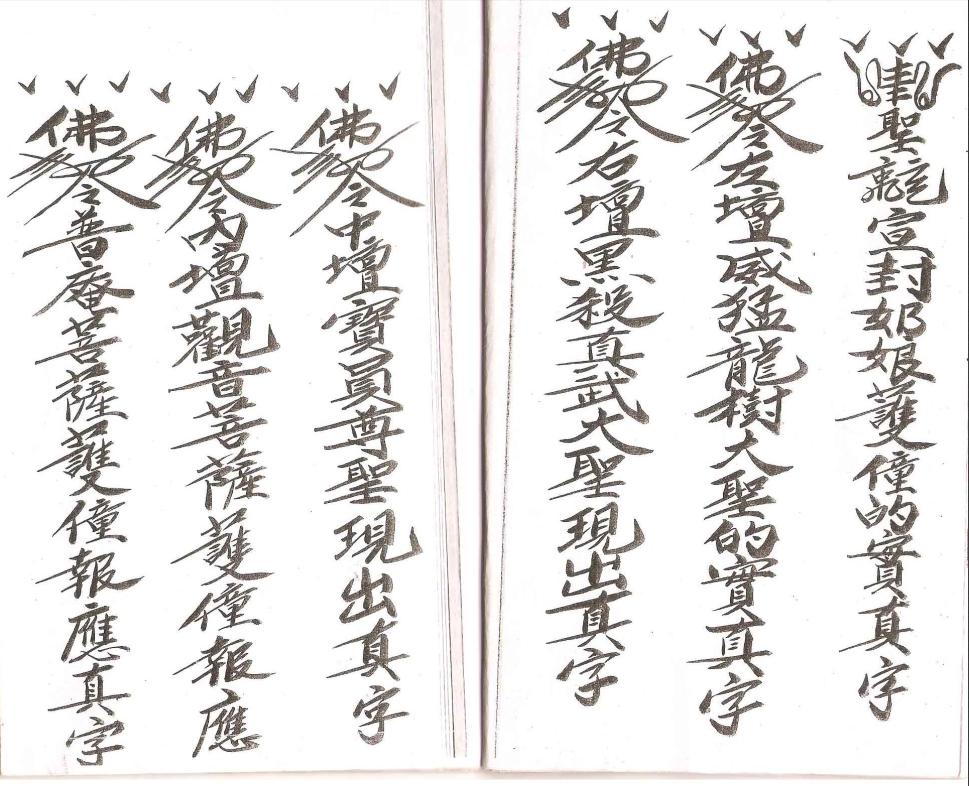 聖龍宣封奶娘護僮的實真字
佛令左壇威猛龍樹大聖的實真字
佛令右壇黑殺真武大聖現出真字
佛令中壇寶員尊聖現出真字
佛令內壇觀音菩薩護僮報應
佛令普庵菩薩護僮報應真字